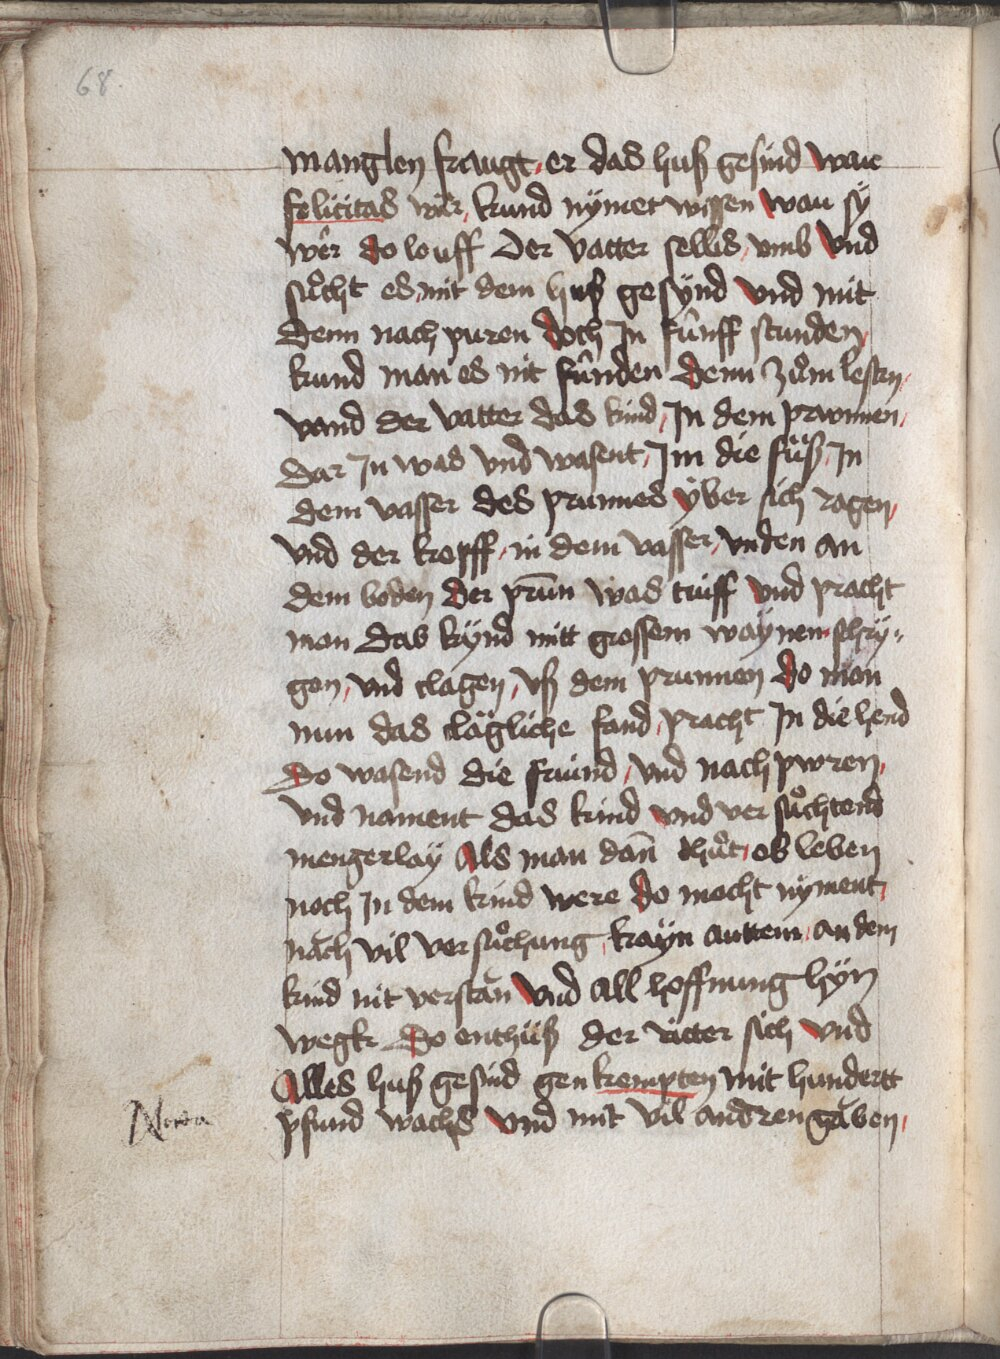 68
manglen fraugt er das huß gesind wau
felicitas wêr kund nÿmet wissen wau sÿ
wêr do louff der vatter sellis vmb vnd
sücht es mit dem huß gesÿnd vnd mit
denn nach puren doch In fünff stunden
kund man es nit fünden denn zům lesten
vand der vatter das kind In dem prunnen
dar In was vnd wasent Im die füß In
dem vasser des prunnes ÿber sich ragen
vnd der kopff in dem vasser vnden an
dem boden der prūn was tüiff vnd pracht
man das kÿnd mitt grossem waÿnen schrÿ„
gen vnd clagen vß dem prunnen do man
nun das clägliche fand pracht In die hend
Do wasend die fruind vnd nach pwren
vnd nament das kind vnd ver sůchtend
mengerlaÿ Als man dan̄ thůt ob leben
noch In dem kind were do mocht nÿment
nach vil ver sůchung kaÿn auttem an dem
kind nit verstan vnd All hoffnung hÿn
wegk Do enthüß der vatter sich vnd
Alles huß gesind gen kempten mit hundertt
pfund wachs vnd mit vil andren gaben
Nota